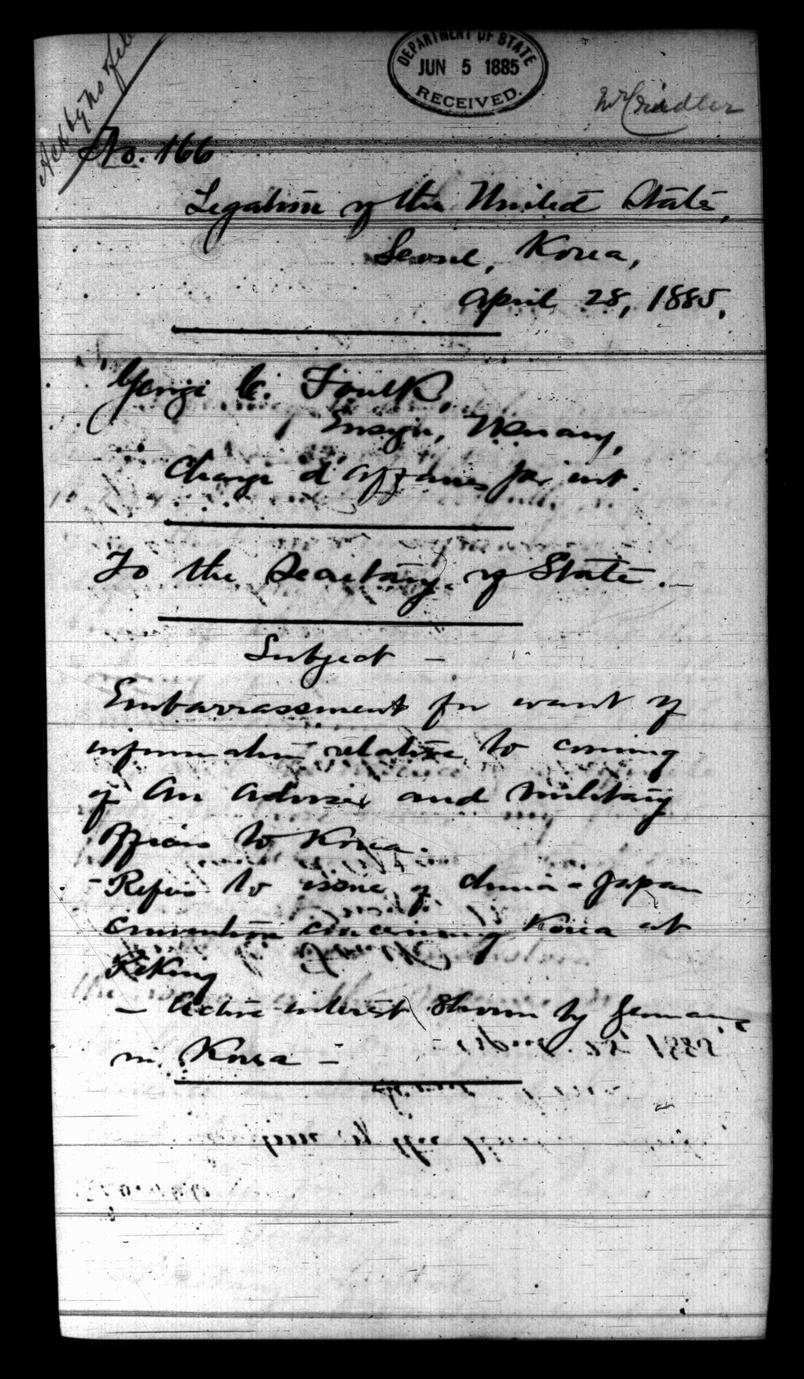 DEPARTMENT OF STATE
JUN 5 1885
RECEIVED.
No. 166
Legation of the United States,
Seoul, Korea,
April 28, 1885.
George C. Foulk,
Ensign, U.S. Navy,
Chargé d'affaires
To the Secretary of State.—
Subject —
Embarrassment for want of
information relative to coming
of An Adviser and Military
Officers to Korea.
- Refers to issue of China-Japan
Convention concerning Korea at
Peking
— Active interest shown by Germany
in Korea —